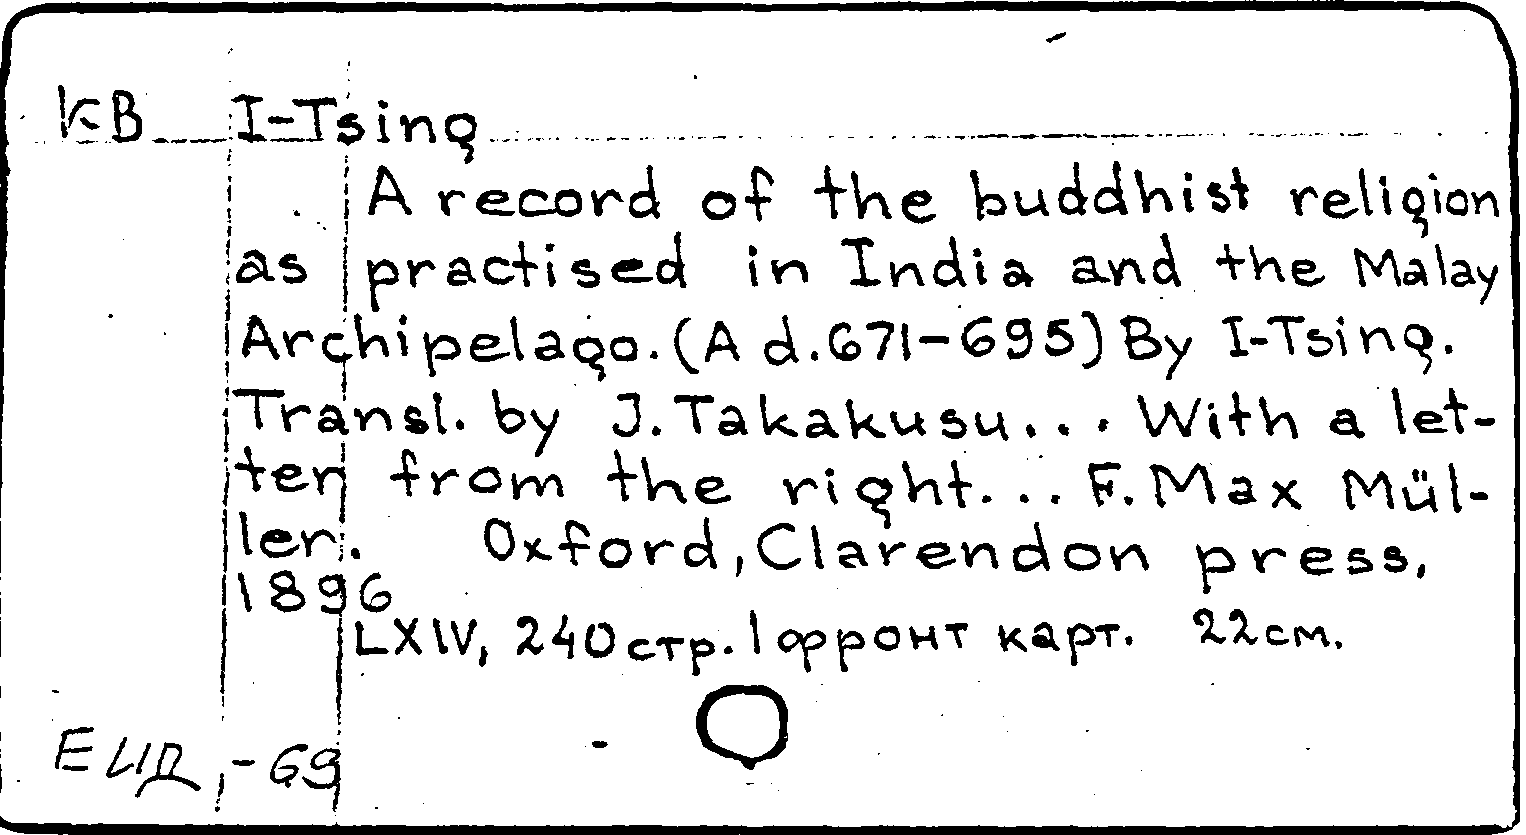 КВ I-Tsing
A record of the buddhist religion
as practised in India and the Malay
Archipelago. (A d. 671-695) By I-Tsing.
Transl. by J. Takakusu... With a let-
ter from the right... F. Max Mül-
ler. Oxford, Clarendon press,
1896
LXIV, 240 стр. 1 фронт карт. 22 см.
-69